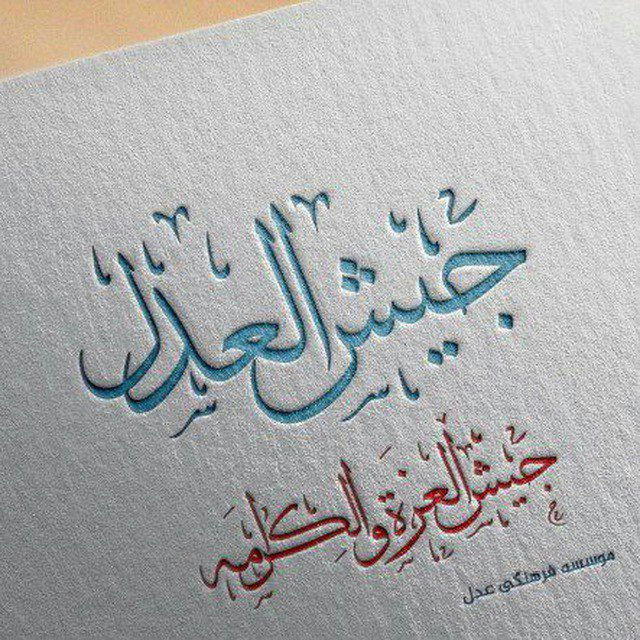 جيش العدل
جيش العزة والكرامه
موسسه فرهنگی عدل